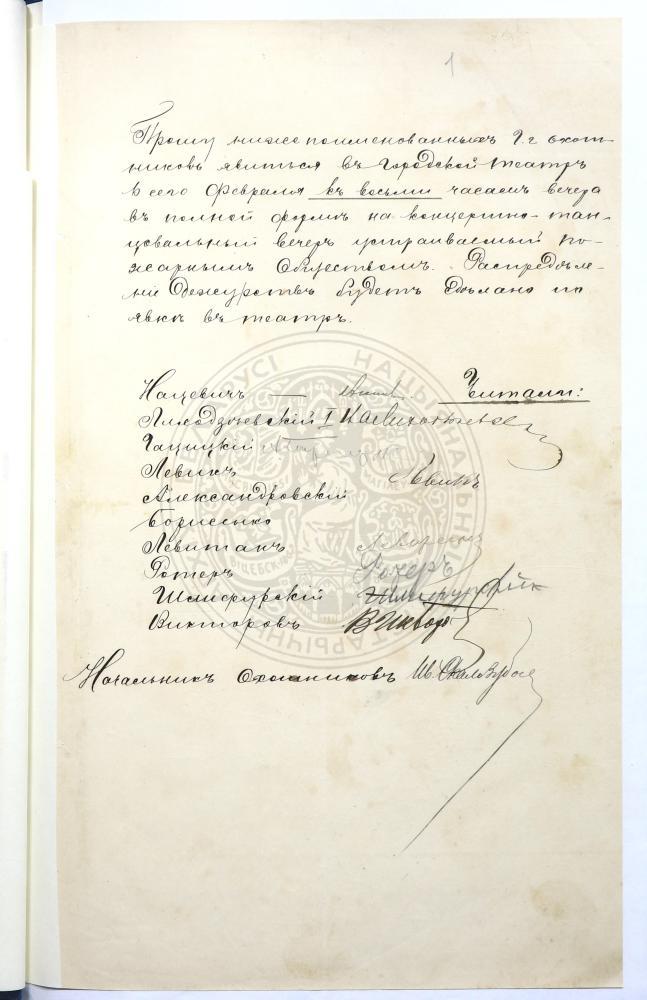 1
Прошу нижепоименованныхъ г.г. охот-
никовъ явиться въ Городской театръ
6 сего Февраля въ восьми часамъ вечера
въ полной формѣ на концертно-тан-
цовальный вечеръ устраиваемый По-
жарнымъ Обществомъ. Распредѣле-
ніе Дежурствъ будетъ Сдѣлано по
явкѣ въ театръ.
Нацевичъ — Читали:
I
Гацицкій
Левикъ Левикъ
Александровскій
Борисенко
Левитанъ
Ротеръ Ротеръ
Шлифурскій
Викторовъ
Начальникъ Охотниковъ